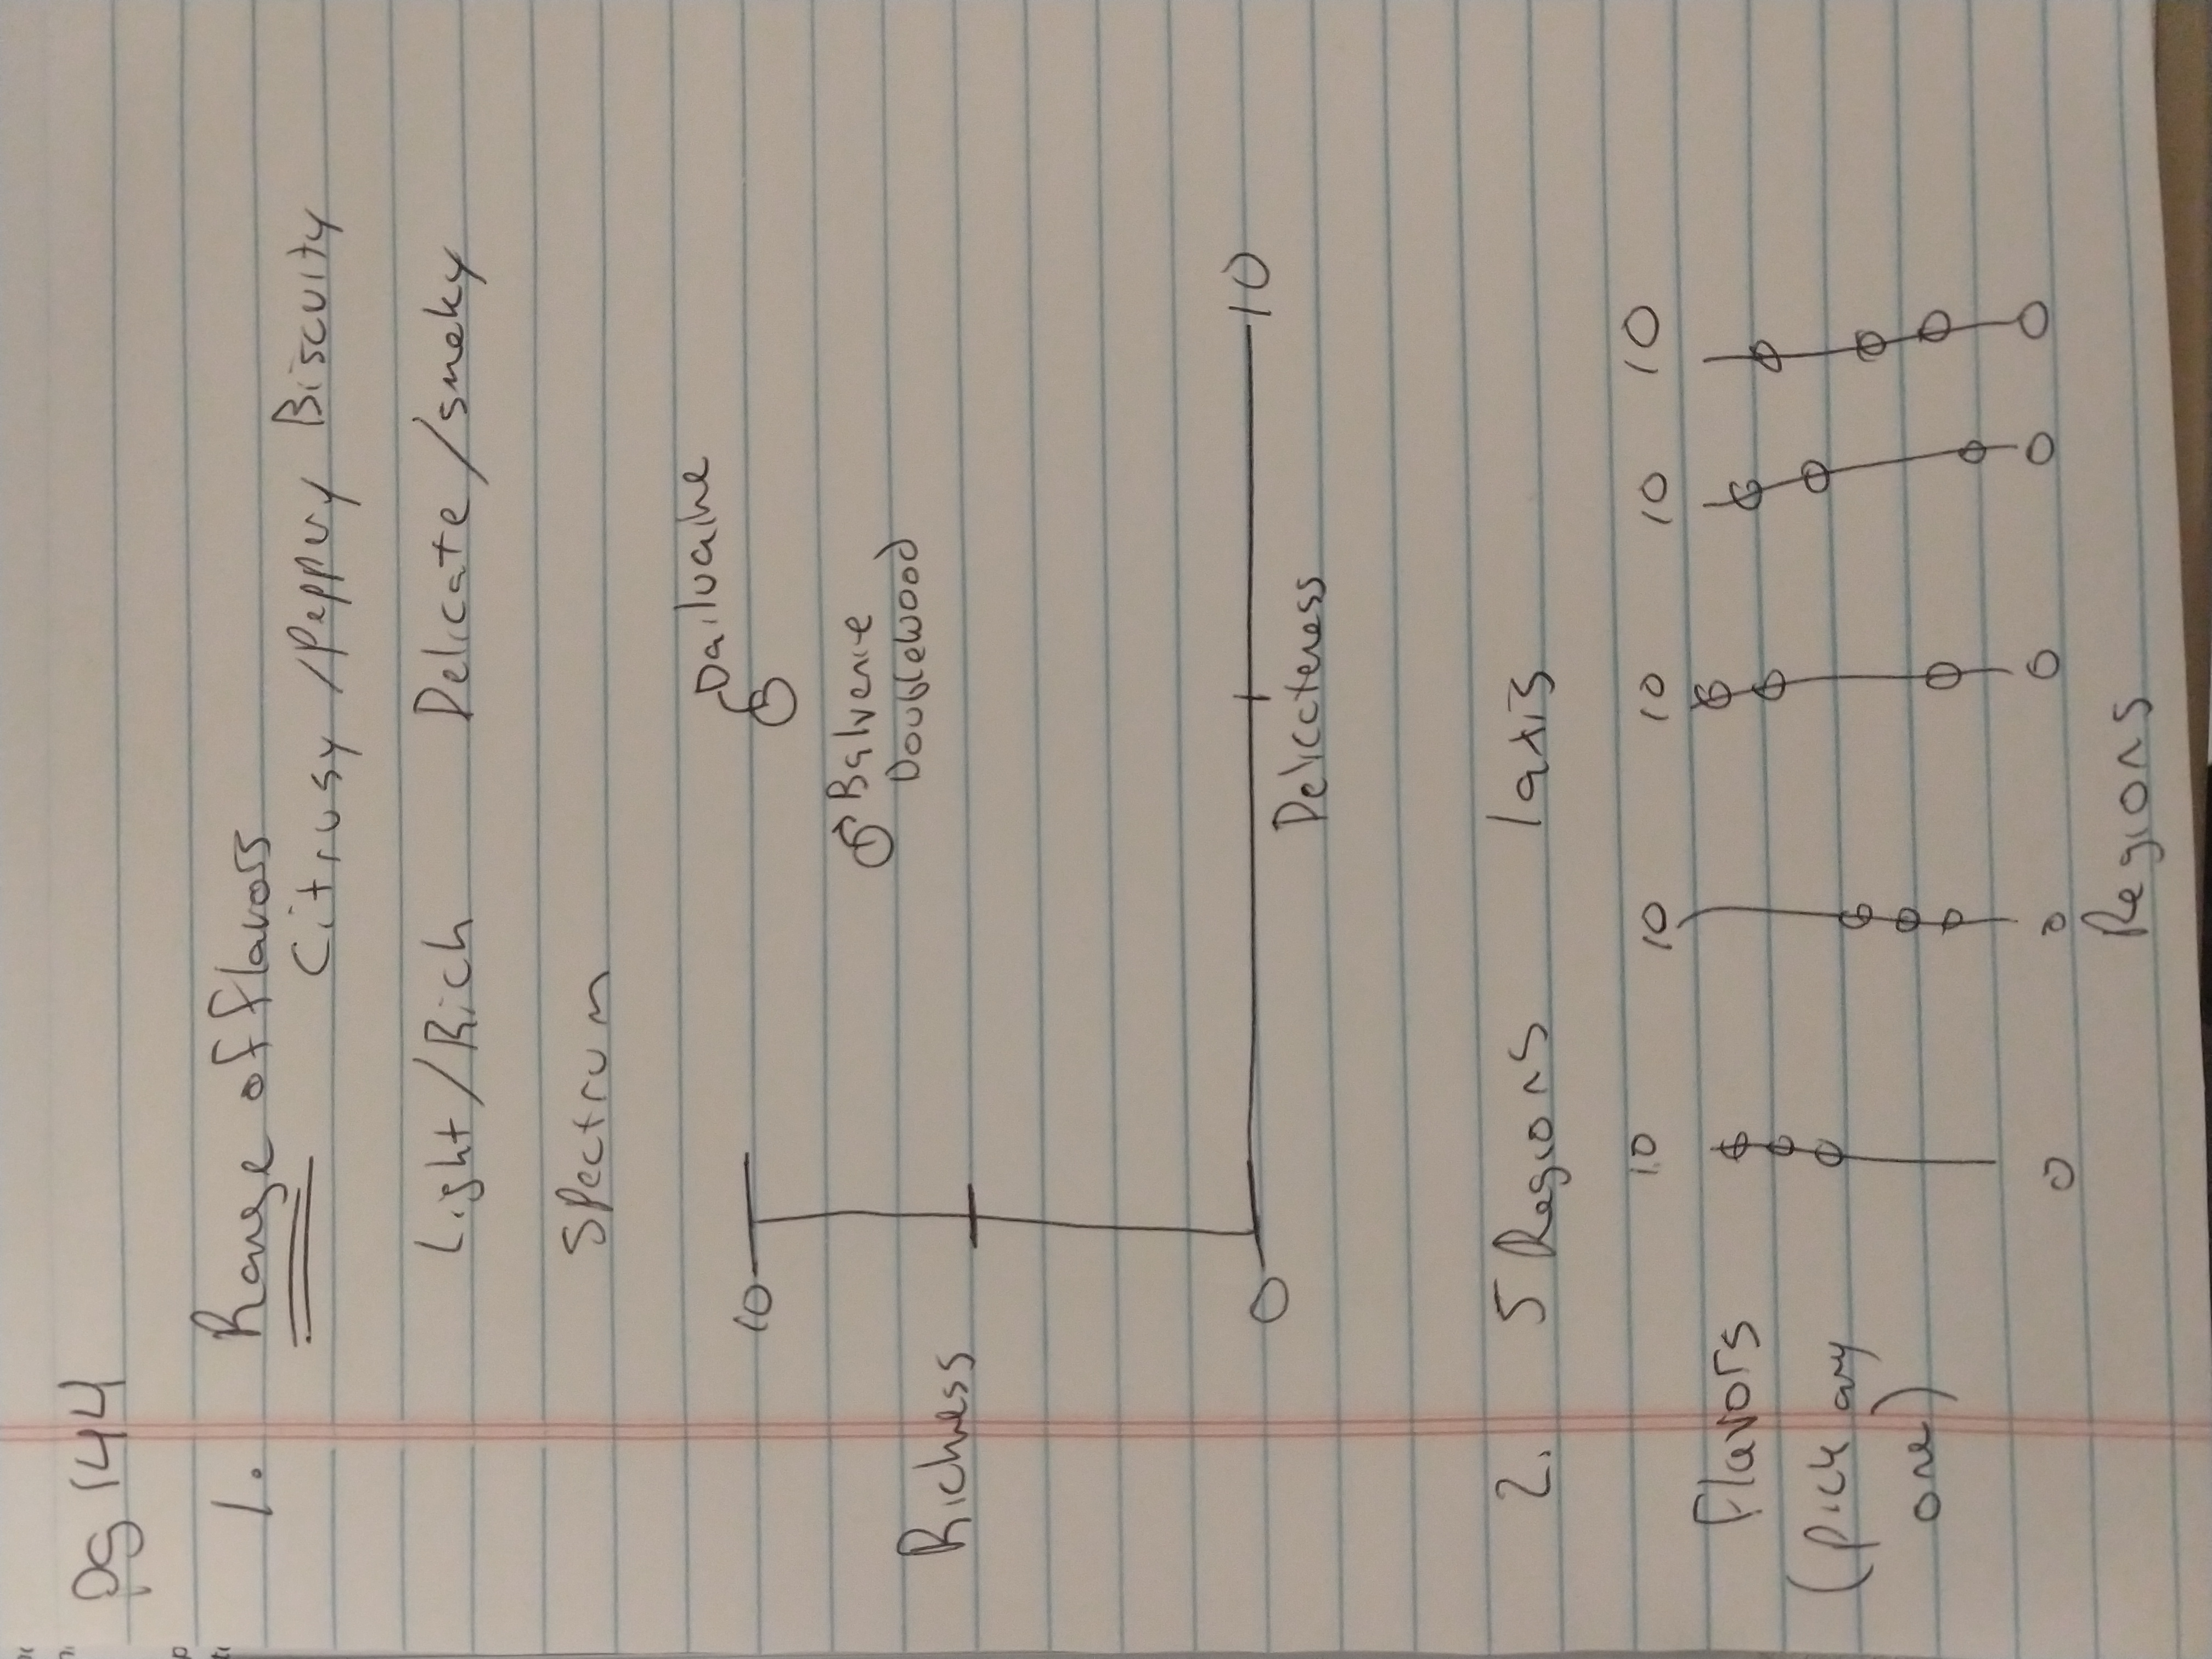 pg 144
1. Range of flavors
Citrusy /Peppery Biscuity
Light/Rich Delicate/smoky
Spectrum
Dailuaine
10
Balvenie
Doublewood
Richness
0 10
Delicateness
2. 5 Regions 1 axis
10 10 10 10 10
Flavors
(pick any
one)
0 0 0 0 0
Regions